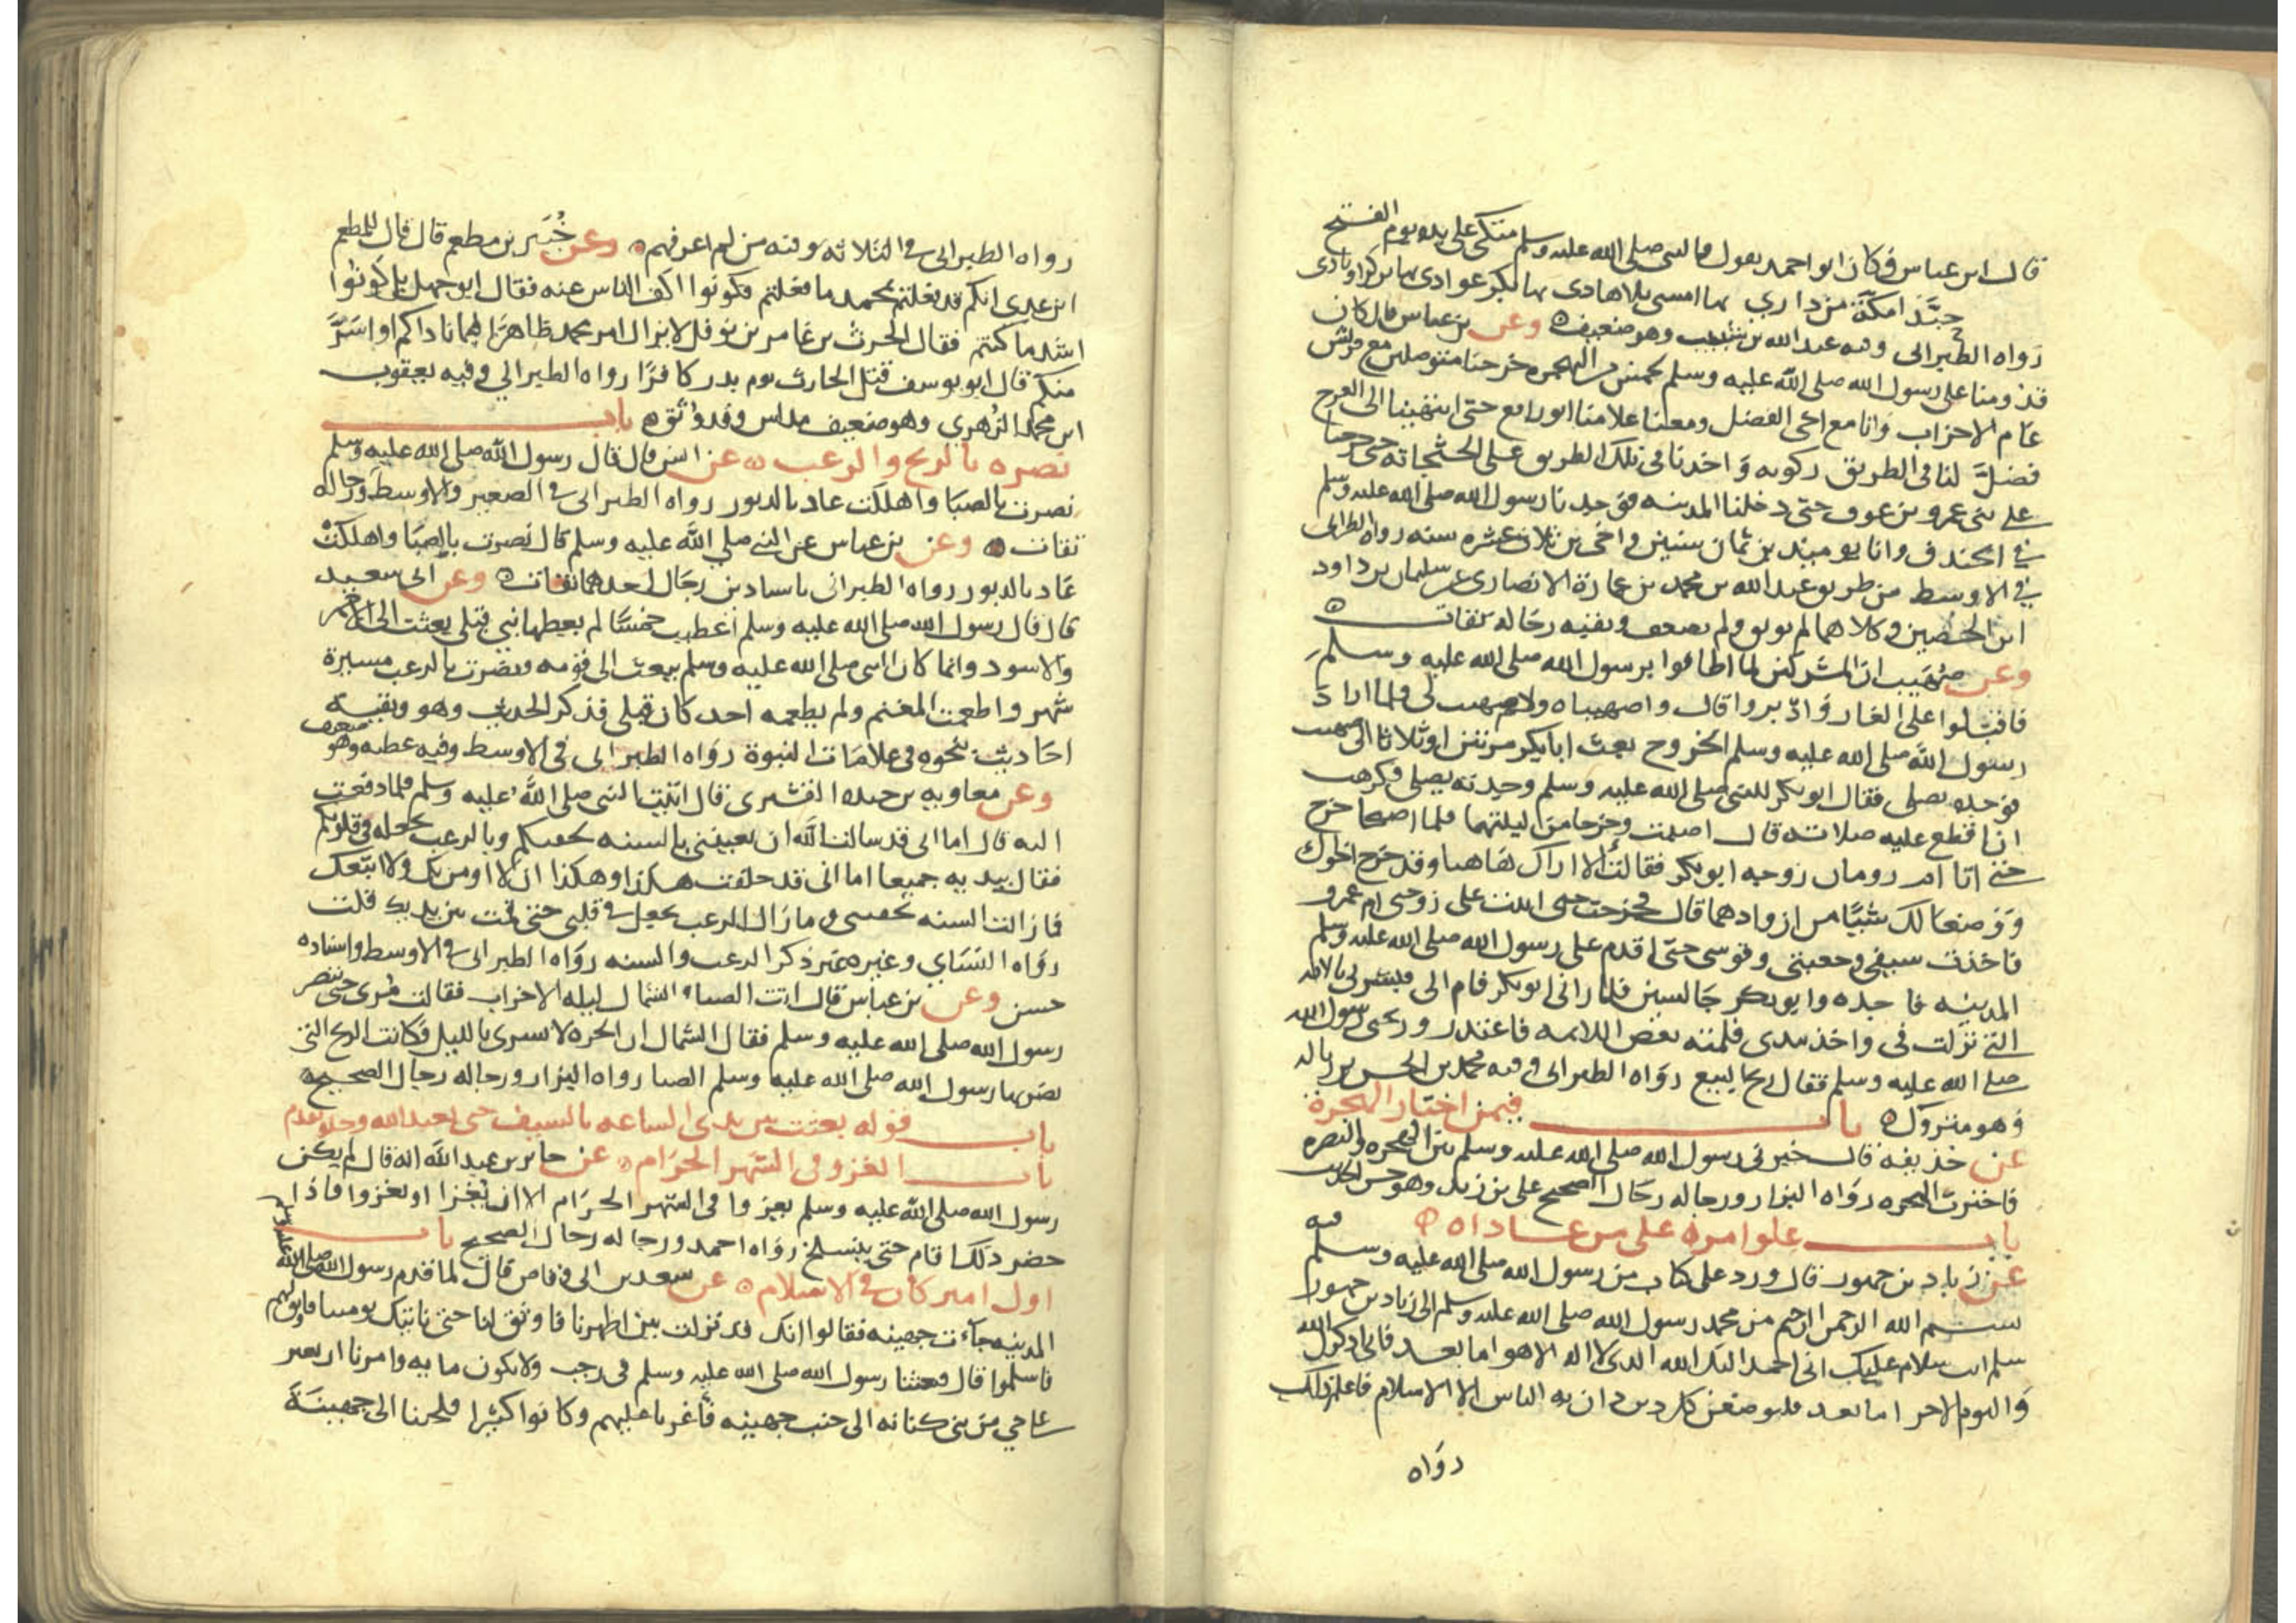 قال ابن عباس وكان ابو احمد يقول والنبى صلى الله عليه وسلم متكئ على يده يوم الفتح
حبَّذا مكة من داري بها امسى بلا هادى بها يكثر عوادى بها تركز اوتادى
رواه الطبرانى وفيه عبد الله بن شبيب وهو ضعيف وعن بن عباس قال كان
قدومنا على رسول الله صلى الله عليه وسلم لخمس من الهجره خرجنا متوصلين مع قريش
عام الاحزاب وانا مع اخى الفضل ومعنا غلامنا ابو رافع حتى انتهينا الى العرج
فضلَّ لنا فى الطريق ركوبه واخذنا فى تلك الطريق على الجثجاثه حتى خرجنا
على بنى عمرو بن عوف حتى دخلنا المدينه فوجدنا رسول الله صلى الله عليه وسلم
في الخندق وانا يوميئذ بن ثمان سنين واخى بن ثلاث عشره سنه رواه الطبرانى
في الاوسط من طريق عبد الله بن محمد بن عمارة الانصارى عن سليمان بن داود
ابن الحصين وكلاهما لم يوثق ولم يضعف وبقيه رجاله ثقات
وعن صُهَيب ان المشركين لما اطافوا برسول الله صلى الله عليه وسلم
فاقبلوا على الغار وَادّبروا قال واصهيباه ولا صهيب لى فلما اراد
رسول الله صلى الله عليه وسلم الخروج بعث ابا بكر مرتين او ثلاثا الى صهيب
فوجده يصلى فقال ابو بكر للنبى صلى الله عليه وسلم وجدته يصلى فكرهت
ان اقطع عليه صلاته قال اصبت وخرجا من ليلتهما فلما اصبحا خرج
حتى اتا ام رومان زوجه ابو بكر فقالت الا اراك هاهنا وقد خرج اخواك
ووضعا لك شيًا من ازوادهما قال فخرجت حتى دخلت على زوجتى ام عمرو
فاخذت سيفى وجعبتى وقوسى حتى اقدم على رسول الله صلى الله عليه وسلم
المدينه فاجده وابو بكر جالسين فلما رانى ابو بكر قام الى فبشرنى بالايه
التى نزلت فى واخذ بيدى فلمته بعض اللايمه فاعتذر وربحنى رسول الله
صلى الله عليه وسلم فقال ربح البيع رواه الطبرانى وفيه محمد بن الحسن بن زباله
وهو متروك باب فيمن اختار الهجرة
عن حذيفه قال خيرنى رسول الله صلى الله عليه وسلم بين الهجره والنصره
فاخترت الهجره رواه البزار ورجاله رجال الصحيح على بن زيد وهو حسن الحديث
باب علو امره على من عاداه
فيه
عن زياد بن جهور قال ورد على كتاب من رسول الله صلى الله عليه وسلم
بسم الله الرحمن الرحيم من محمد رسول الله صلى الله عليه وسلم الى زياد بن جهور
سلم انت سلام عليك انى احمد اليك الله الذى لا اله الا هو اما بعد فانى اذكرك الله
واليوم الاخر اما بعد فليوضعن كل دين دان به الناس الا الاسلام فاعلم ذلك
رواه
رواه الطبرانى فى الثلاثه وفيه من لم اعرفهم وعن جُبَير بن مطعم قال قال المطعم
ابن عدى انكم قد فعلتم بمحمد ما فعلتم فكونوا اكف الناس عنه فقال ابو جهل بل كونوا
اشد ما كنتم فقال الحرث بن عامر بن نوفل لا يزال امر محمد ظاهرًا فيما ناداكم او اسَرَّ
منكم قال ابو يوسف قتل الحارث يوم بدر كافرًا رواه الطبراني وفيه يعقوب
ابن محمد الزهري وهو ضعيف مدلس وقد وُثق باب
نصره بالريح والرعب عن انس قال قال رسول الله صلى الله عليه وسلم
نصرت بالصبا واهلكت عاد بالدبور رواه الطبرانى فى الصغير والاوسط ورجاله
ثقات وعن بن عباس عن النبى صلي الله عليه وسلم قال نصرت بالصبا واهلكت
عَاد بالدبور رواه الطبرانى باسنادين رجال احدهما ثقات وعن ابى سعيد
قال قال رسول الله صلى الله عليه وسلم اعطيت خمسًا لم يعطها نبي قبلى بعثت الى الاحمر
والاسود وانما كان النبى صلى الله عليه وسلم يبعث الى قومه ونصرت بالرعب مسيرة
شهر واطعمت المغنم ولم يطعمه احد كان قبلى فذكر الحديث وهو وبقيته
احاديث نحوه فى علامات النبوة رواه الطبرانى فى الاوسط وفيه عطيه وهو ضعيف
وعن معاويه بن حيده القشيرى قال اتيت النبى صلى الله عليه وسلم فلما دفعت
اليه قال اما انى قد سالت الله ان يعيننى بالسنه تحفيكم وبالرعب يجعله فى قلوبكم
فقال بيديه جميعا اما انى قد حلفت هكذا وهكذا ان لا اومن بك ولا اتبعك
فما زالت السنه تحفينى وما زال الرعب يجعل فى قلبى حتى قمت بين يديك قلت
رواه النساي وغيره غير ذكر الرعب والسنه رواه الطبرانى فى الاوسط واسناده
حسن وعن بن عباس قال اتت الصبا الشمال ليله الاحزاب فقالت مُرى حتى ننصر
رسول الله صلى الله عليه وسلم فقال الشمال ان الحره لا تسرى بالليل فكانت الريح التى
نصر بها رسول الله صلى الله عليه وسلم الصبا رواه البزار ورجاله رجال الصحيح
باب قوله بعثت بين يدى الساعه بالسيف حتى يعبد الله وحده وتقدم
باب الغزو فى الشهر الحرام عن جابر بن عبد الله انه قال لم يكن
رسول الله صلى الله عليه وسلم يعزوا فى الشهر الحرام الا ان يُغزا او يغزوا فاذا
حضر ذلك اقام حتى ينسلخ رواه احمد ورجاله رجال الصحيح باب
اول امير كان فى الاسلام عن سعد بن ابى وقاص قال لما قدم رسول الله صلى الله عليه وسلم
المدينه جآءت جهينه فقالوا انك قد نزلت بين اظهرنا فاوثق لنا حتى ناتيك بومنا فاوثق لهم
فاسلموا قال وبعثنا رسول الله صلى الله عليه وسلم فى رجب ولا نكون مايه وامرنا ان نغير
علي حي من بنى كنانه الى جنب جهينه فأغرنا عليهم وكانوا كثيرا فلجئنا الى جهينة